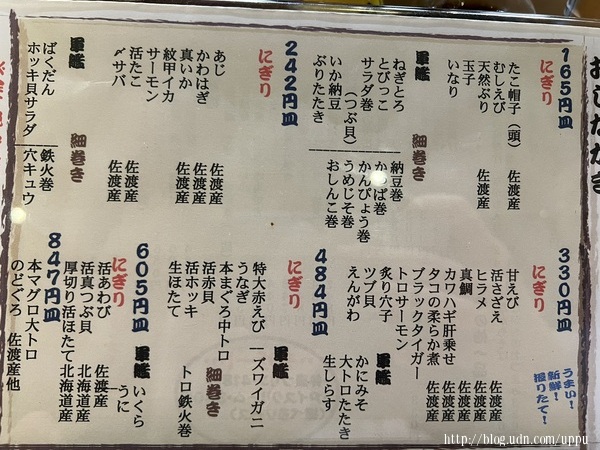 おしながき
165円皿
にぎり
たこ帽子（頭） 佐渡産
むしえび
天然ぶり 佐渡産
玉子
いなり
軍艦
ねぎとろ
とびっこ
サラダ巻
（つぶ貝）
いか納豆
ぶりたたき
細巻き
納豆巻
かっぱ巻
かんぴょう巻
うめじそ巻
おしんこ巻
242円皿
にぎり
あじ
かわはぎ 佐渡産
真いか 佐渡産
紋甲イカ 佐渡産
サーモン
活たこ
〆サバ 佐渡産
軍艦
ばくだん
ホッキ貝サラダ
細巻き
鉄火巻
穴キュウ
330円皿
うまい！
新鮮！
握りたて！
にぎり
甘えび 佐渡産
活さざえ 佐渡産
ヒラメ 佐渡産
真鯛 佐渡産
カワハギ肝乗せ
タコの柔らか煮 佐渡産
ブラックタイガー
トロサーモン
炙り穴子
ツブ貝
えんがわ
軍艦
かにみそ
大トロたたき
生しらす
484円皿
にぎり
特大赤えび
うなぎ
本まぐろ中トロ
活赤貝
活ホッキ
生ほたて
軍艦
ズワイガニ
細巻き
トロ鉄火巻
605円皿
にぎり
活あわび 佐渡産
活真つぶ貝 北海道産
厚切り活ほたて 北海道産
軍艦
いくら
うに
847円皿
本マグロ大トロ
のどぐろ 佐渡産他
http://blog.udn.com/uppu